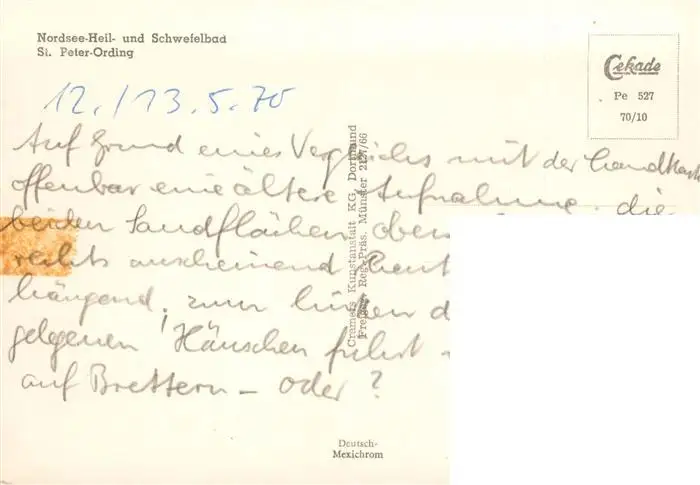 Nordsee-Heil- und Schwefelbad
St. Peter-Ording
Cekade
Pe 527
70/10
12./13.5.70
Auf Grund eines Vergleichs mit der Landkarte
offenbar eine ältere Aufnahme. die
beiden Sandflächen oben
rechts anscheinend
hängend, zum linken d
gelegenen Häuschen führt
auf Brettern – oder?
Cramers Kunstanstalt KG, Dortmund
Freigeg. Reg.-Präs. Münster 2127/66
Deutsch-
Mexichrom